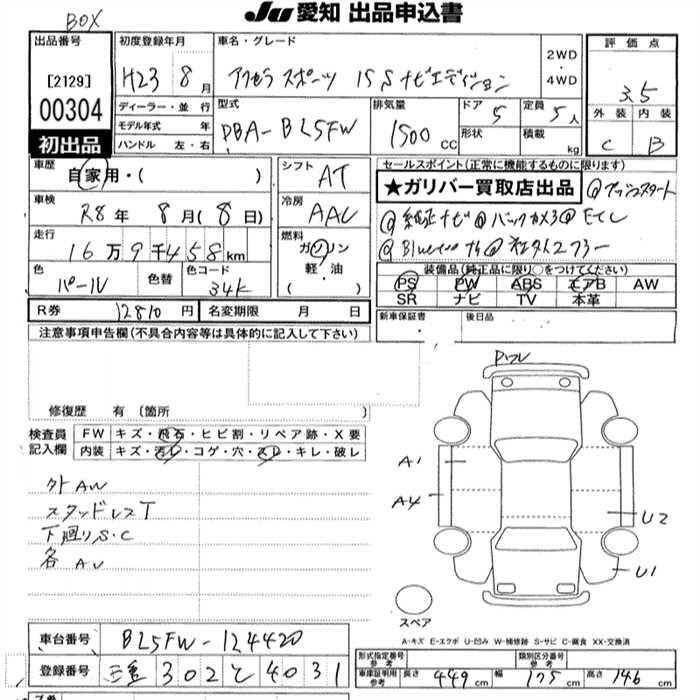 BOX
JU 愛知 出品申込書
出品番号
[2129]
00304
初出品
初度登録年月
H23 8月
車名・グレード
アクセラスポーツ 15S ナビエディション
2WD
・
4WD
評価点
3.5
外装 内装
C B
ディーラー・並 行
モデル年式 年
ハンドル 左・右
型式
DBA-BL5FW
排気量
1500 CC
ドア 5
形状
定員 5人
積載 kg
車歴
自家用・( )
車検
R8年 8月(8日)
走行
16万9千458km
色
パール
色替
色コード
34K
シフト
AT
冷房
AAC
燃料
ガソリン
・軽・油
( )
セールスポイント(正常に機能するものに限ります)
★ガリバー買取店出品
@プッシュスタート
@純正ナビ@バックカメラ@ETC
装備品(純正品に限り○をつけてください)
PS PW ABS エアB AW
SR ナビ TV 本革
R券 12810円
名変期限 月 日
新車保証書
後日品
注意事項申告欄(不具合内容等は具体的に記入して下さい)
修復歴 有 〔箇所 〕
検査員
記入欄
FW キズ・飛石・ヒビ割・リペア跡・X要
内装 キズ・汚レ・コゲ・穴・スレ・キレ・破レ
外AW
スタッドレスT
下廻りS・C
各AU
A1
A4
U2
U1
スペア
A-キズ E-エクボ U-凹み W-補修跡 S-サビ C-腐食 XX-交換済
車台番号 BL5FW-124420
登録番号 三重 302 と 4031
型式指定番号
参考
類別区分番号
参考
車庫証明用
参考
長さ 449cm 幅 175cm 高さ 146cm